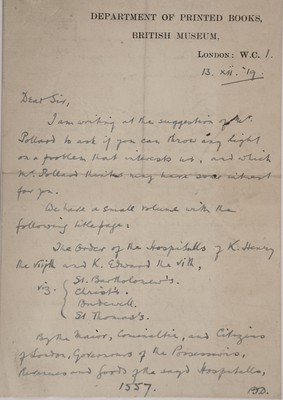 DEPARTMENT OF PRINTED BOOKS,
BRITISH MUSEUM,
LONDON: W.C. 1.
13. xii. '19.
Dear Sir,
I am writing at the suggestion of Mr.
Pollard to ask if you can throw any light
on a problem that interests us, and which
Mr. Pollard thinks may have some interest
for you.
We have a small volume with the
following titlepage:
The Order of the Hospitalls of K. Henry
the viijth and K. Edward the vith,
viz.
St. Bartholomew's.
Christ's.
Bridewell.
St Thomas's.
By the Maior, Cominaltie, and Citizens
of London, Governours of the Possessions,
Revenues and Goods of the sayd Hospitalls,
1557.